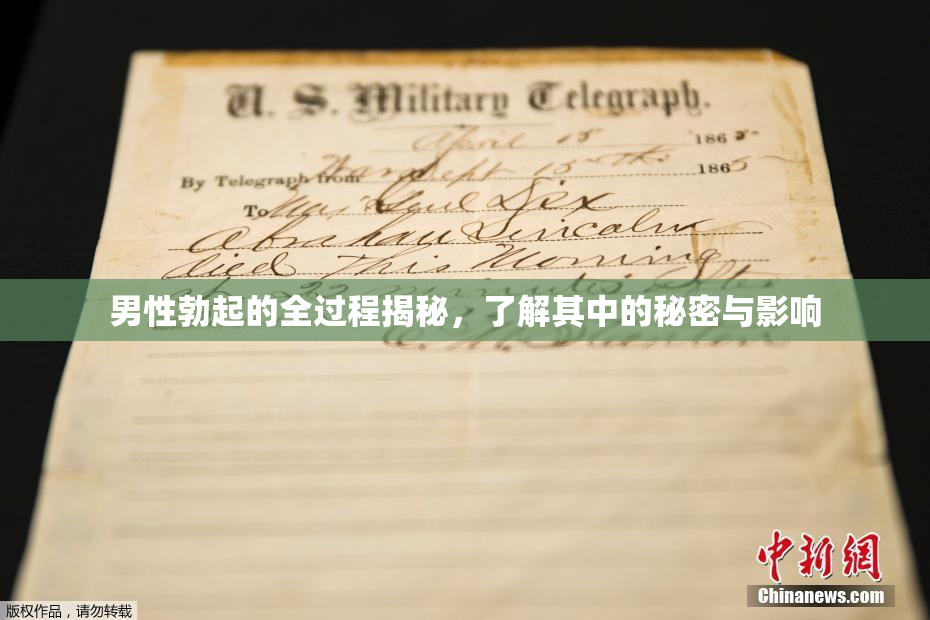 U. S. Military Telegraph.
April 15 1865
By Telegraph from War Dept 15th 1865
To Maj Genl Dix
Abraham Lincoln
died This Morning
22 minutes after
男性勃起的全过程揭秘，了解其中的秘密与影响
中新网
Chinanews.com
版权作品，请勿转载